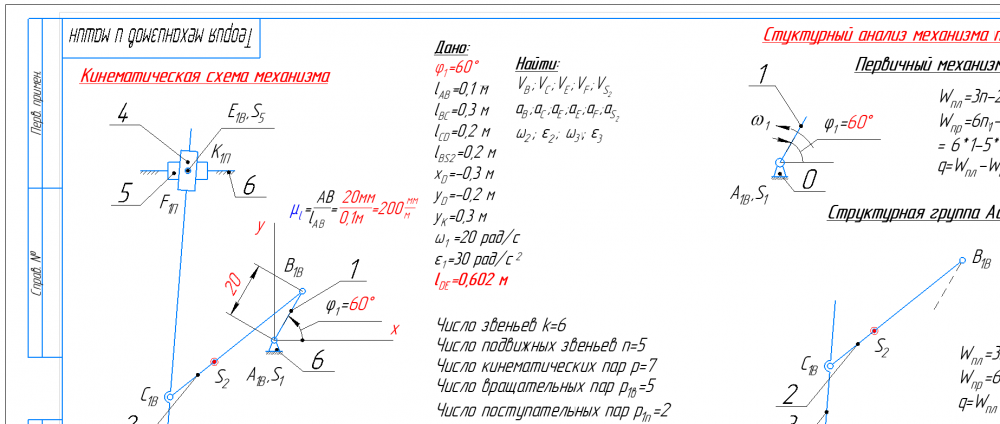 Теория механизмов и машин
Кинематическая схема механизма
Перв. примен.
Справ. №
4
E1В, S5
K1П
5
F1П
6
μl=AB/lAB=20мм/0,1м=200 мм/м
y
B1В
1
20
φ1=60°
x
6
A1В, S1
S2
C1В
2
Дано:
φ1=60°
lAB=0,1 м
lBC=0,3 м
lCD=0,2 м
lBS2=0,2 м
xD=-0,3 м
yD=-0,2 м
yK=0,3 м
ω1 =20 рад/с
ε1=30 рад/с²
lDE=0,602 м
Найти:
VB; VC; VE; VF; VS2
aB; aC; aE; aE; aF; aS2
ω2; ε2; ω3; ε3
Число звеньев k=6
Число подвижных звеньев n=5
Число кинематических пар p=7
Число вращательных пар p1в=5
Число поступательных пар p1п=2
Стуктурный анализ механизма
Первичный механизм
1
ω1
φ1=60°
0
A1В, S1
Wпл=3n-2
Wпр=6n1-
= 6*1-5*
q=Wпл-W
Структурная группа
B1В
S2
C1В
2
3
Wпл=3
Wпр=6
q=Wпл